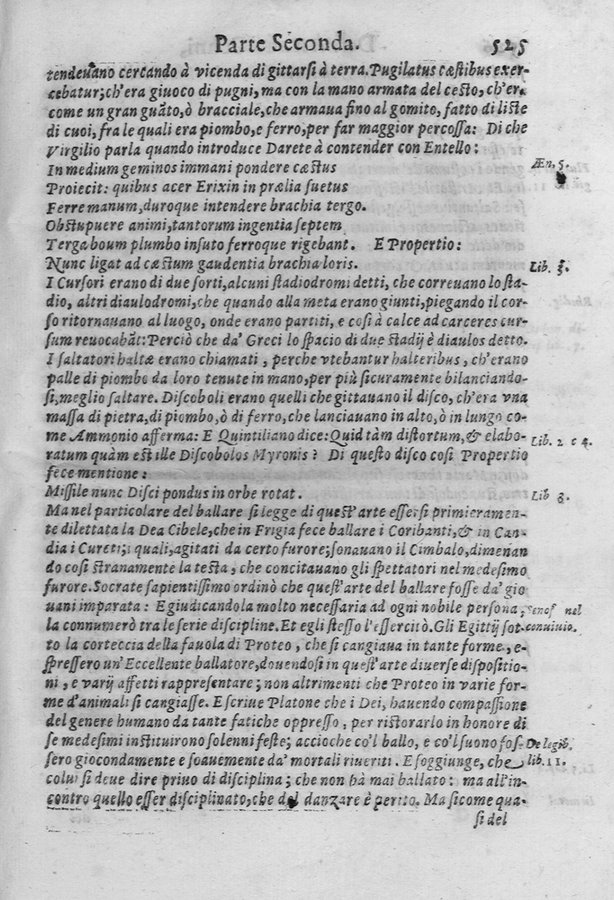 Parte Seconda. 525
tendeuano cercando à vicenda di gittarsi à terra. Pugilatus cæstibus exer-
cebatur; ch'era giuoco di pugni, ma con la mano armata del cesto, ch'era
come un gran guāto, ò bracciale, che armaua fino al gomito, fatto di liste
di cuoi, fra le quali era piombo, e ferro, per far maggior percossa: Di che
Virgilio parla quando introduce Darete à contender con Entello:
In medium geminos immani pondere cæstus
Æn, 5.
Proiecit: quibus acer Erixin in prælia suetus
Ferre manum, duroque intendere brachia tergo.
Obstupuere animi, tantorum ingentia septem
Terga boum plumbo insuto ferroque rigebant. E Propertio:
Nunc ligat ad cæstum gaudentia brachia loris.
Lib. 3.
I Cursori erano di due sorti, alcuni stadiodromi detti, che correuano lo sta-
dio, altri diaulodromi, che quando alla meta erano giunti, piegando il cor-
so ritornauano al luogo, onde erano partiti, e così à calce ad carceres cur-
sum reuocabāt: Perciò che da' Greci lo spacio di due stadij è diaulos detto.
I saltatori haltæ erano chiamati, perche vtebantur halteribus, ch'erano
palle di piombo da loro tenute in mano, per più sicuramente bilanciando-
si, meglio saltare. Discoboli erano quelli che gittauano il disco, ch'era vna
massa di pietra, di piombo, ò di ferro, che lanciauano in alto, ò in lungo co-
me Ammonio afferma: E Quintiliano dice: Quid tàm distortum, & elabo-
ratum quàm est ille Discobolos Myronis? Di questo disco così Propertio
Lib. 2 c 4.
fece mentione:
Missile nunc Disci pondus in orbe rotat.
Lib 8.
Ma nel particolare del ballare si legge di quest'arte essersi primieramen-
te dilettata la Dea Cibele, che in Frigia fece ballare i Coribanti, & in Can-
dia i Cureti; i quali, agitati da certo furore; sonauano il Cimbalo, dimenan
do così stranamente la testa, che concitauano gli spettatori nel medesimo
furore. Socrate sapientissimo ordinò che quest'arte del ballare fosse da' gio
uani imparata: E giudicandola molto necessaria ad ogni nobile persona,
Senof nel
la connumerò tra le serie discipline. Et egli stesso l'essercitò. Gli Egittij sot-
conuiuio.
to la corteccia della fauola di Proteo, che si cangiaua in tante forme, e-
spressero un'Eccellente ballatore, douendosi in quest'arte diuerse dispositio-
ni, e varij affetti rappresentare; non altrimenti che Proteo in varie for-
me d'animali si cangiasse. E scriue Platone che i Dei, hauendo compassione
del genere humano da tante fatiche oppresso, per ristorarlo in honore di
se medesimi instituirono solenni feste; accioche co'l ballo, e co'l suono fos-
De legib.
sero giocondamente e soauemente da' mortali riueriti. E soggiunge, che
lib. 11.
colui si deue dire priuo di disciplina; che non hà mai ballato: ma all'in-
contro quello esser disciplinato, che del danzare è perito. Ma sicome qua-
si del